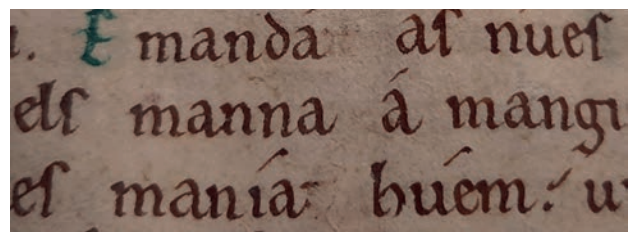 . E mandá aſ núeſ
elſ manna á mangi
eſ manía búem. u